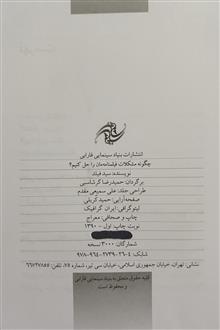 انتشارات بنیاد سینمایی فارابی
چگونه مشکلات فیلمنامه‌مان را حل کنیم؟
نویسنده: سید فیلد
برگردان: حمیدرضا گرشاسبی
طراحی جلد: علی سمیعی مقدم
صفحه‌آرایی: حمید کربلی
لیتوگرافی: ایران گرافیک
چاپ و صحافی: معراج
نوبت چاپ: اول - ۱۳۹۰
شمارگان: ۳۰۰۰ نسخه
شابک: ۱-۲۶-۲۷۳۹-۹۶۴-۹۷۸
نشانی: تهران، خیابان جمهوری اسلامی، خیابان سی تیر، شماره ۷۵، تلفن: ۶۶۷۴۷۸۵۵
کلیه حقوق متعلق به بنیاد سینمایی فارابی
و محفوظ است